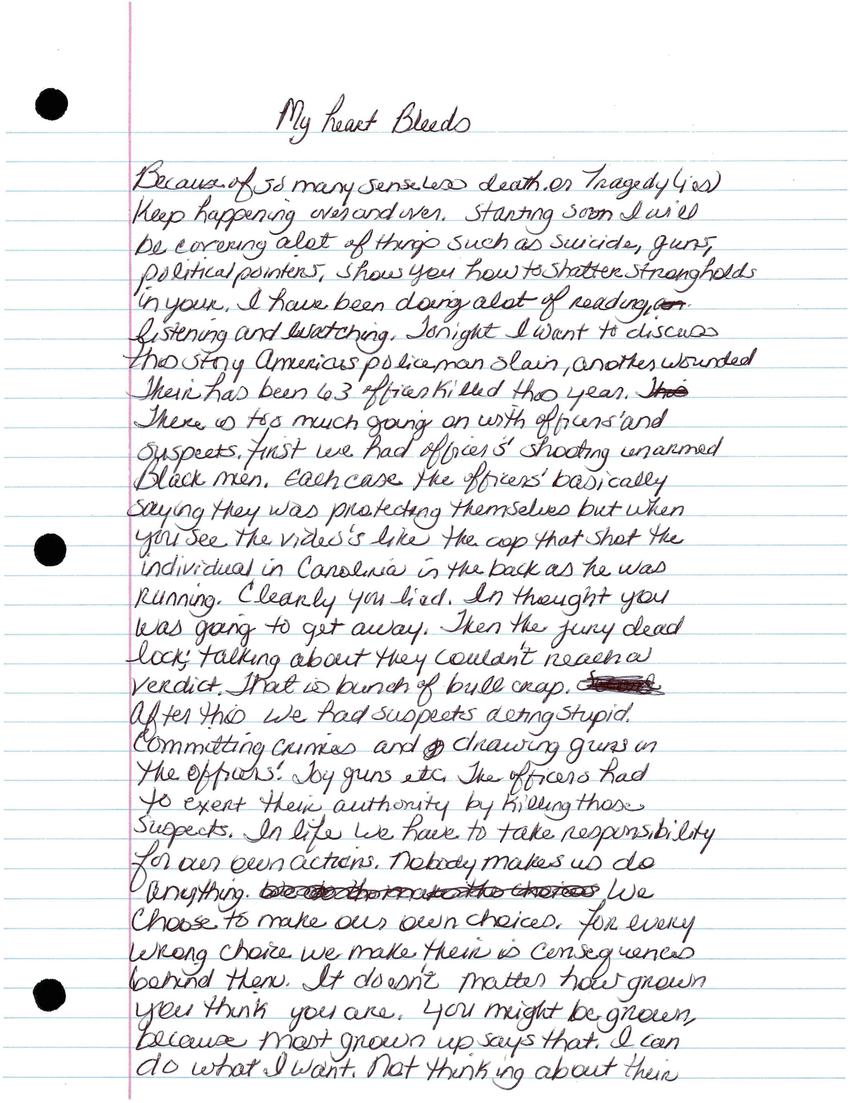 My heart Bleeds
Because of so many senseless death.or Tragedy(ies)
Keep happening over and over. Starting soon I will
be covering alot of things such as suicide, guns,
political pointers, show you how to shatter strongholds
in your. I have been doing alot of reading,
listening and watching. Tonight I want to discuss
this story Americas policeman slain, another wounded
Their has been 63 officers killed this year. This
There is too much going on with officers' and
suspects. First we had officers' shooting unarmed
Black men. Each case the officers' basically
saying they was protecting themselves but when
you see the video's like the cop that shot the
individual in Carolinia in the back as he was
running. Clearly you lied. In thought you
was going to get away. Then the jury dead
lock; talking about they couldn't reach a
verdict. That is bunch of bull crap.
After this we had suspects acting stupid.
Committing crimes and drawing guns on
the officers'. Toy guns etc. The officers had
to exert their authority by killing those
suspects. In life we have to take responsibility
for our own actions. Nobody makes us do
anything. We
Choose to make our own choices. For every
wrong choice we make their is consequences
behind them. It doesn't matter how grown
you think you are. You might be grown,
because most grown up says that. I can
do what I want. Not thinking about their